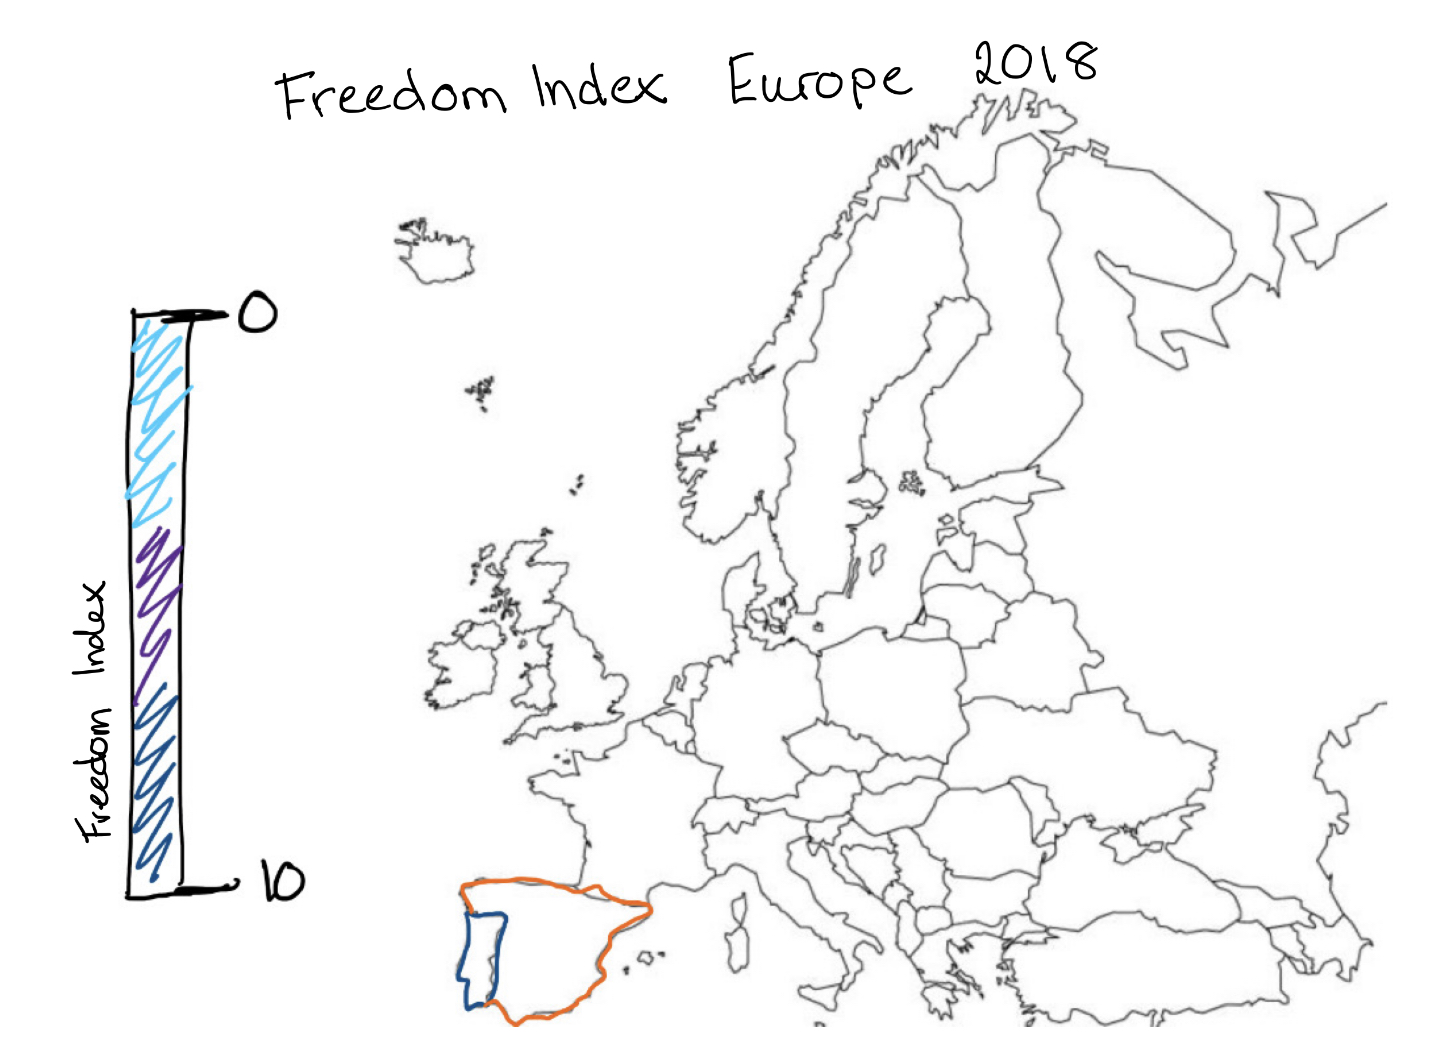 Freedom Index Europe 2018
0
Freedom Index
10